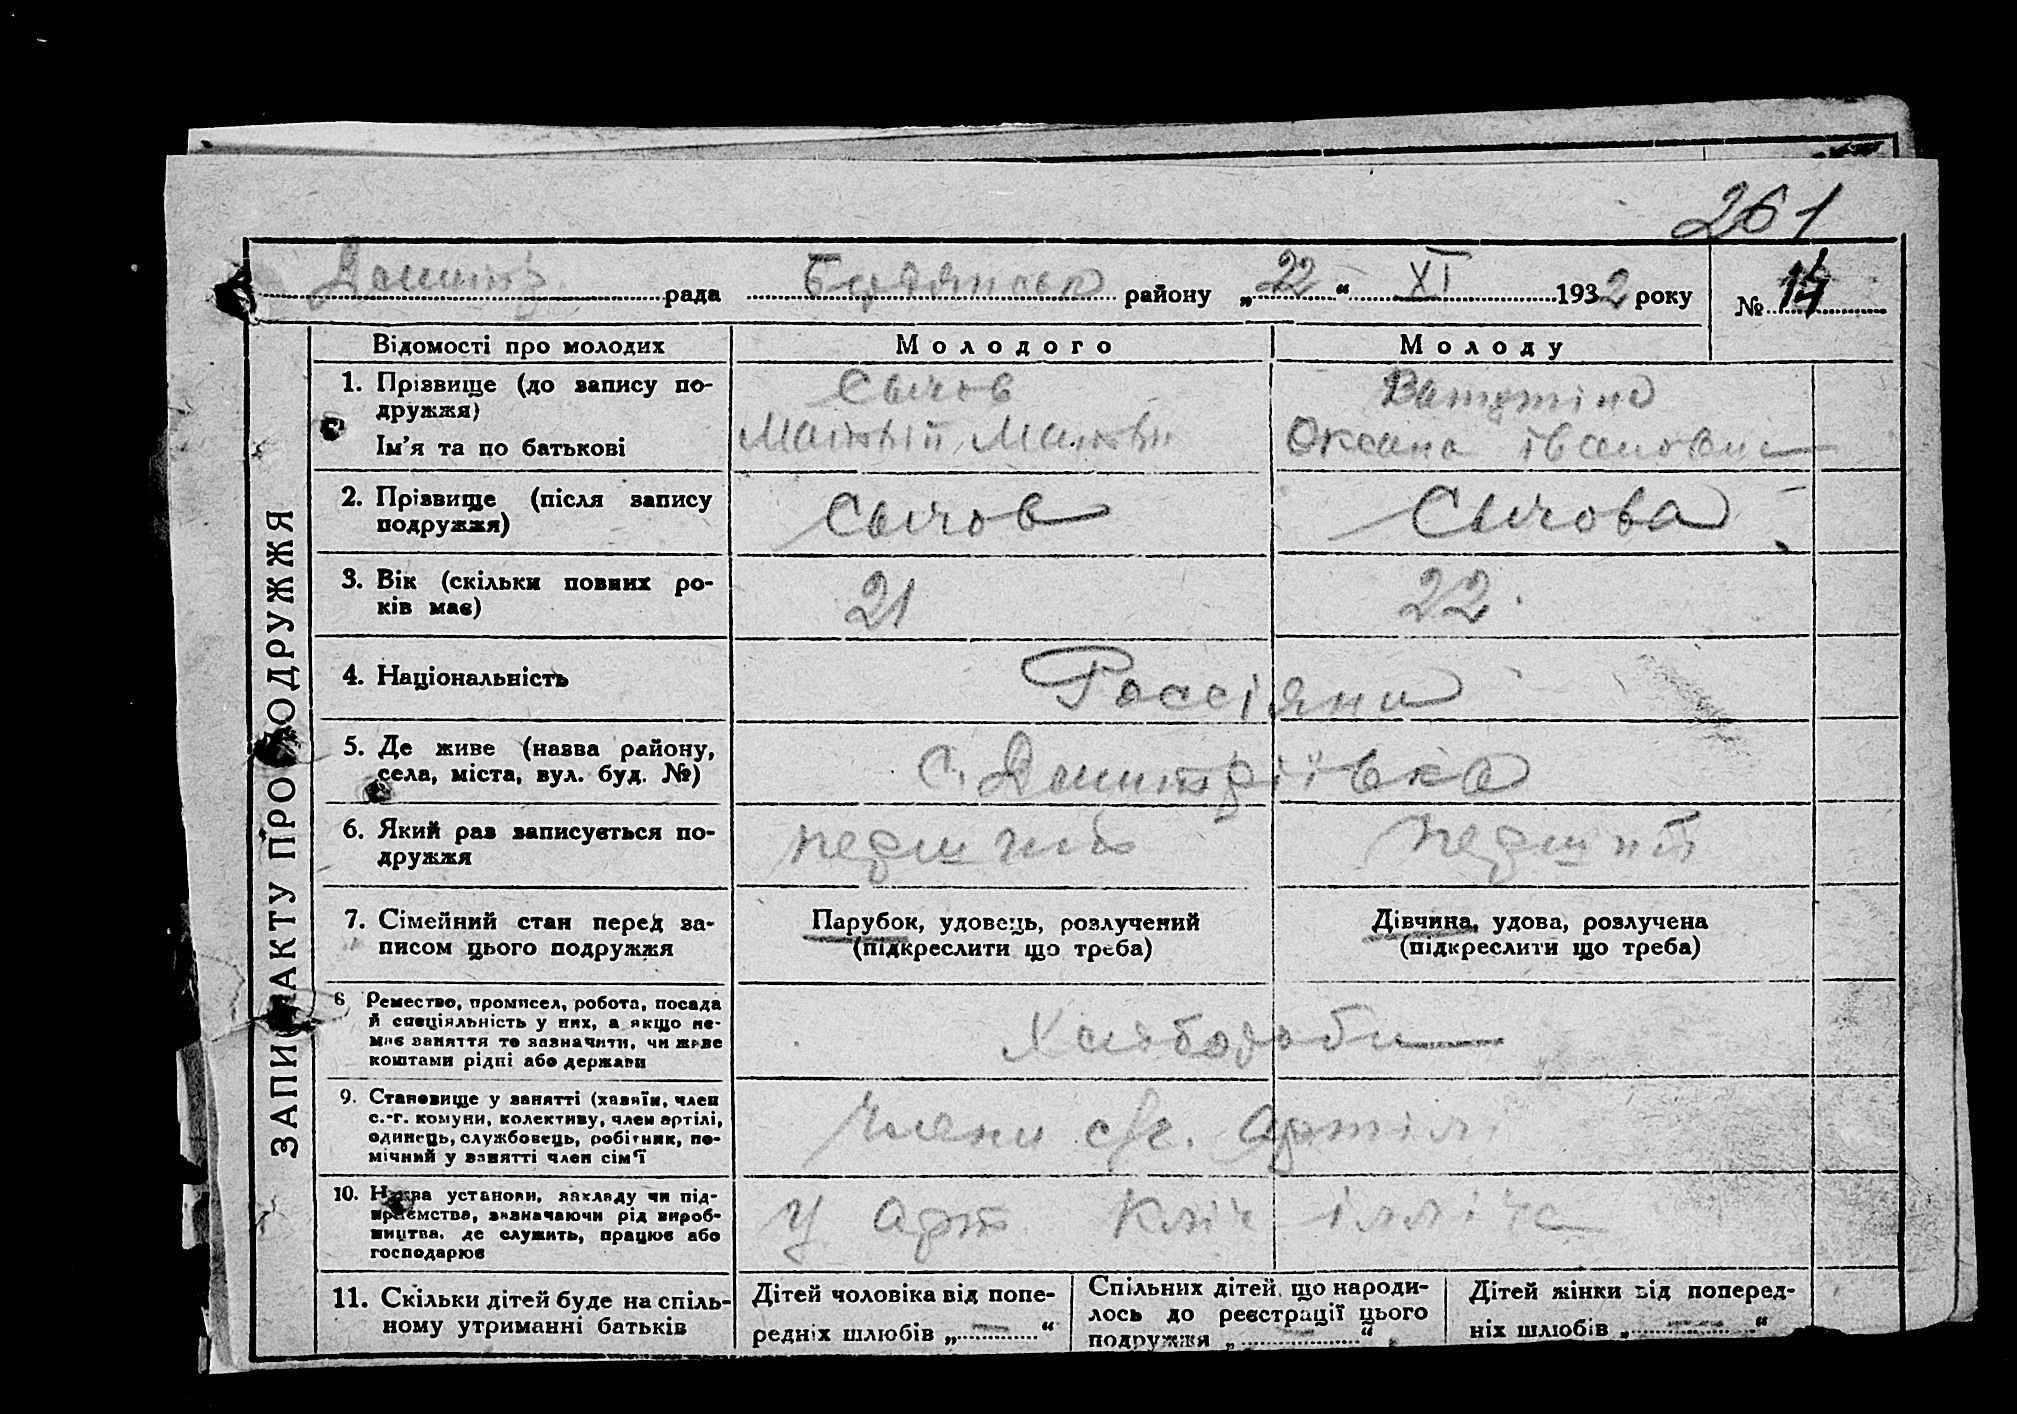 261
Дмитр рада Бердянськ района „22“ XI 1932 року № 14
ЗАПИС АКТУ ПРО ОДРУЖЖЯ
Відомості про молодих Молодого Молоду
1. Прізвище (до запису по- Сычов Ватутіна
дружжя)
Ім'я та по батькові Оксана Івановна
2. Прізвище (після запису Сычов Сычова
подружжя)
3. Вік (скільки повних ро- 21 22
ків має)
4. Національність Россіяни
5. Де живе (назва району, с. Дмитріївка
села, міста, вул. буд. №)
6. Який раз записується по- перший перший
дружжя
7. Сімейний стан перед за- Парубок, удовець, розлучений Дівчина, удова, розлучена
писом цього подружжя (підкреслити що треба) (підкреслити що треба)
8 Ремество, промисел, робота, посада
й спеціяльність у них, а якщо не-
має заняття то зазначити, чи живе Хлібороби
коштами рідні або держави
9. Становище у занятті (хазяїн, член
с.-г. комуни, колективу, член артілі, Члени с/г. артілі
одинець, службовець, робітник, по-
мічний у занятті член сім'ї
10. Назва установи, закладу чи під-
приємства, зазначаючи рід вироб- У арт Кліч Ілліча
ництва, де служить, працює або
господарює
11. Скільки дітей буде на спіль- Дітей чоловіка від попе- Спільних дітей, що народи- Дітей жінки від поперед-
ному утриманні батьків редніх шлюбів „—“ лось до реєстрації цього ніх шлюбів „—“
подружжя „—“